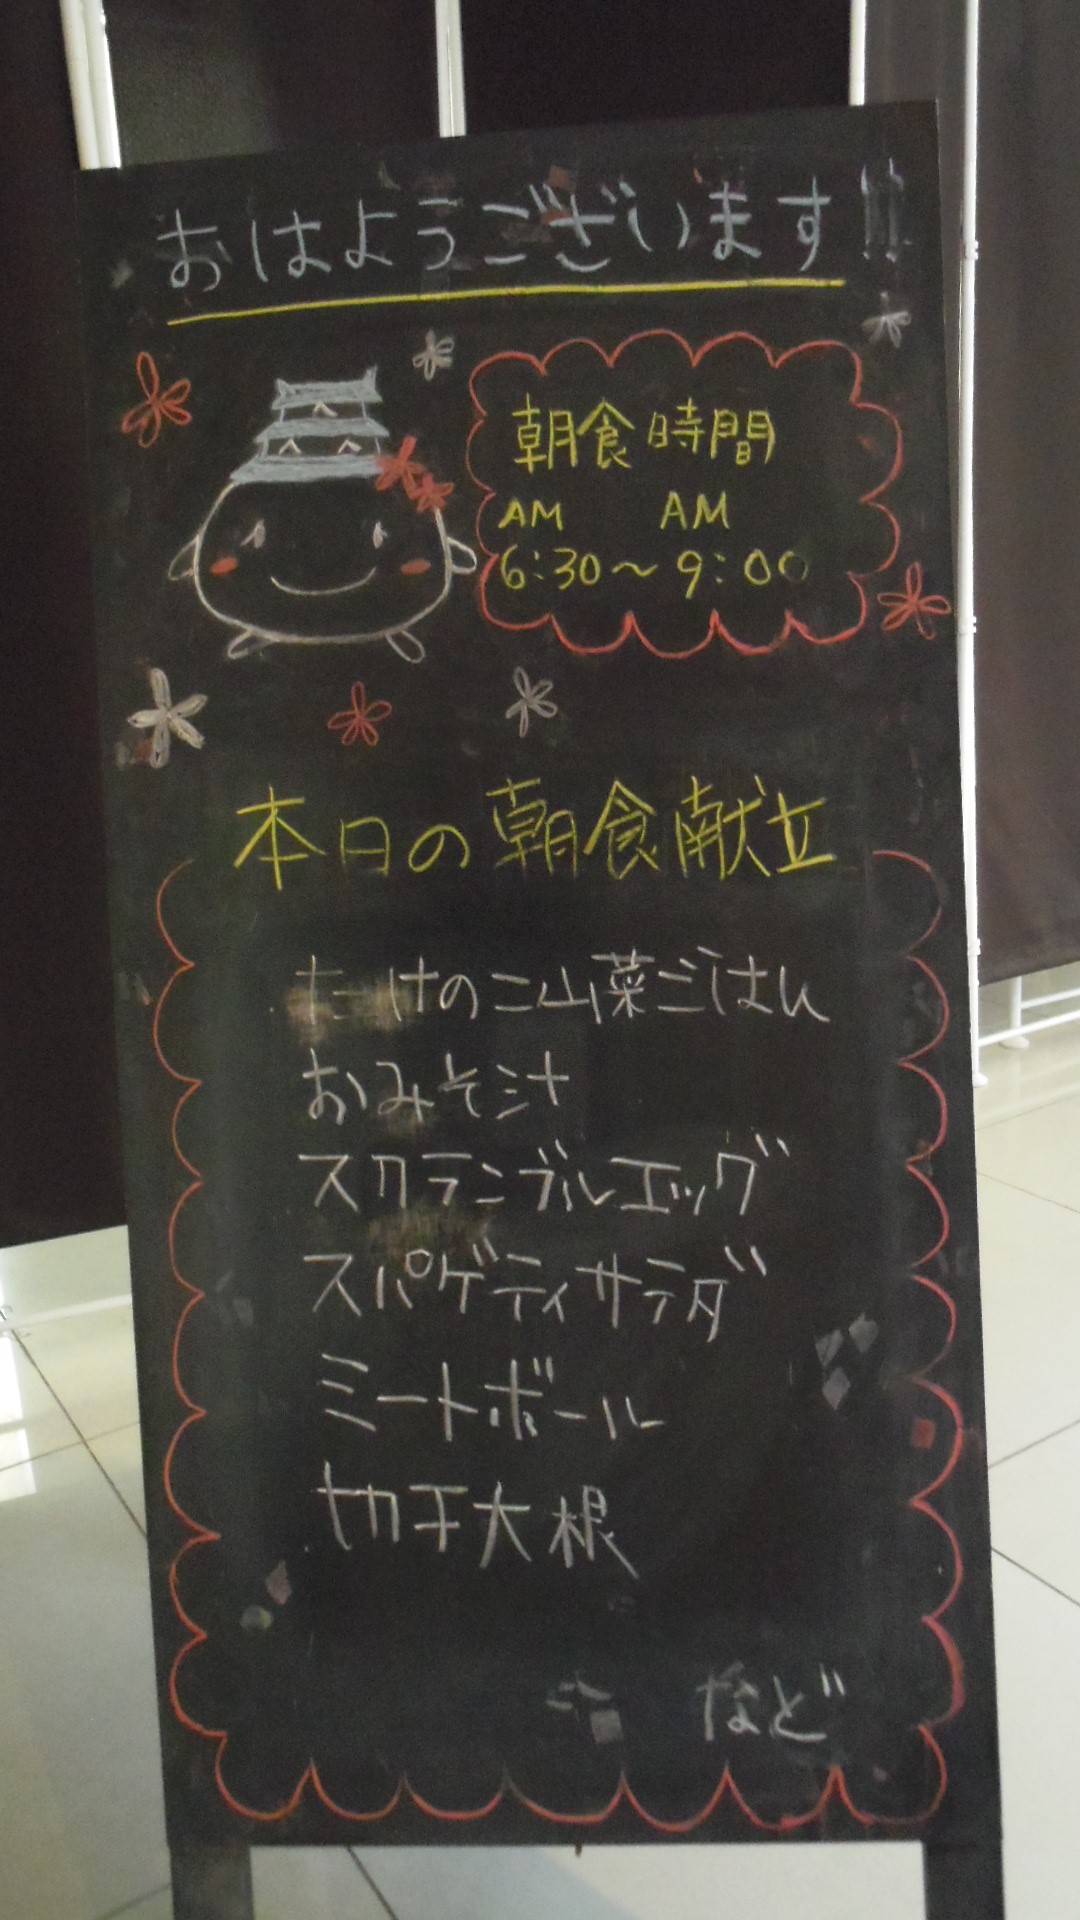 おはようございます!!
朝食時間
AM AM
6:30~9:00
本日の朝食献立
たけのこ山菜ごはん
おみそ汁
スクランブルエッグ
スパゲティサラダ
ミートボール
切干大根
など